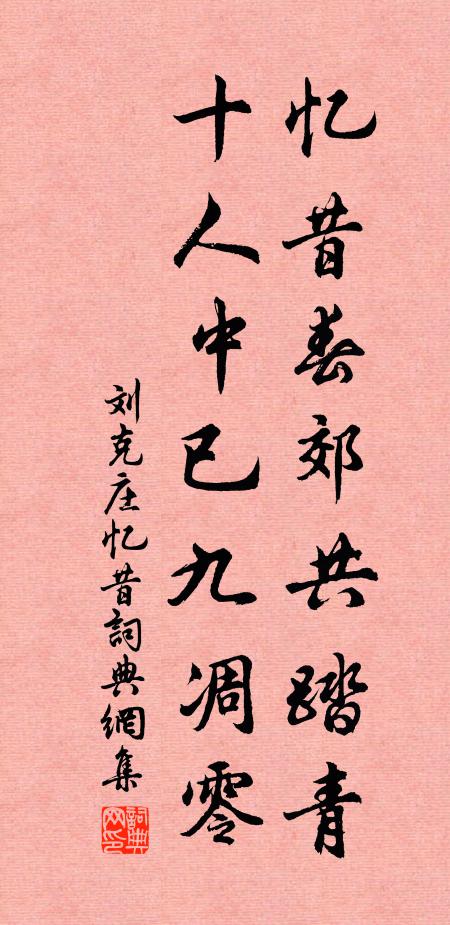 忆昔春郊共踏青
十人中已九凋零
刘克庄忆昔詞典網集
詞典
网印